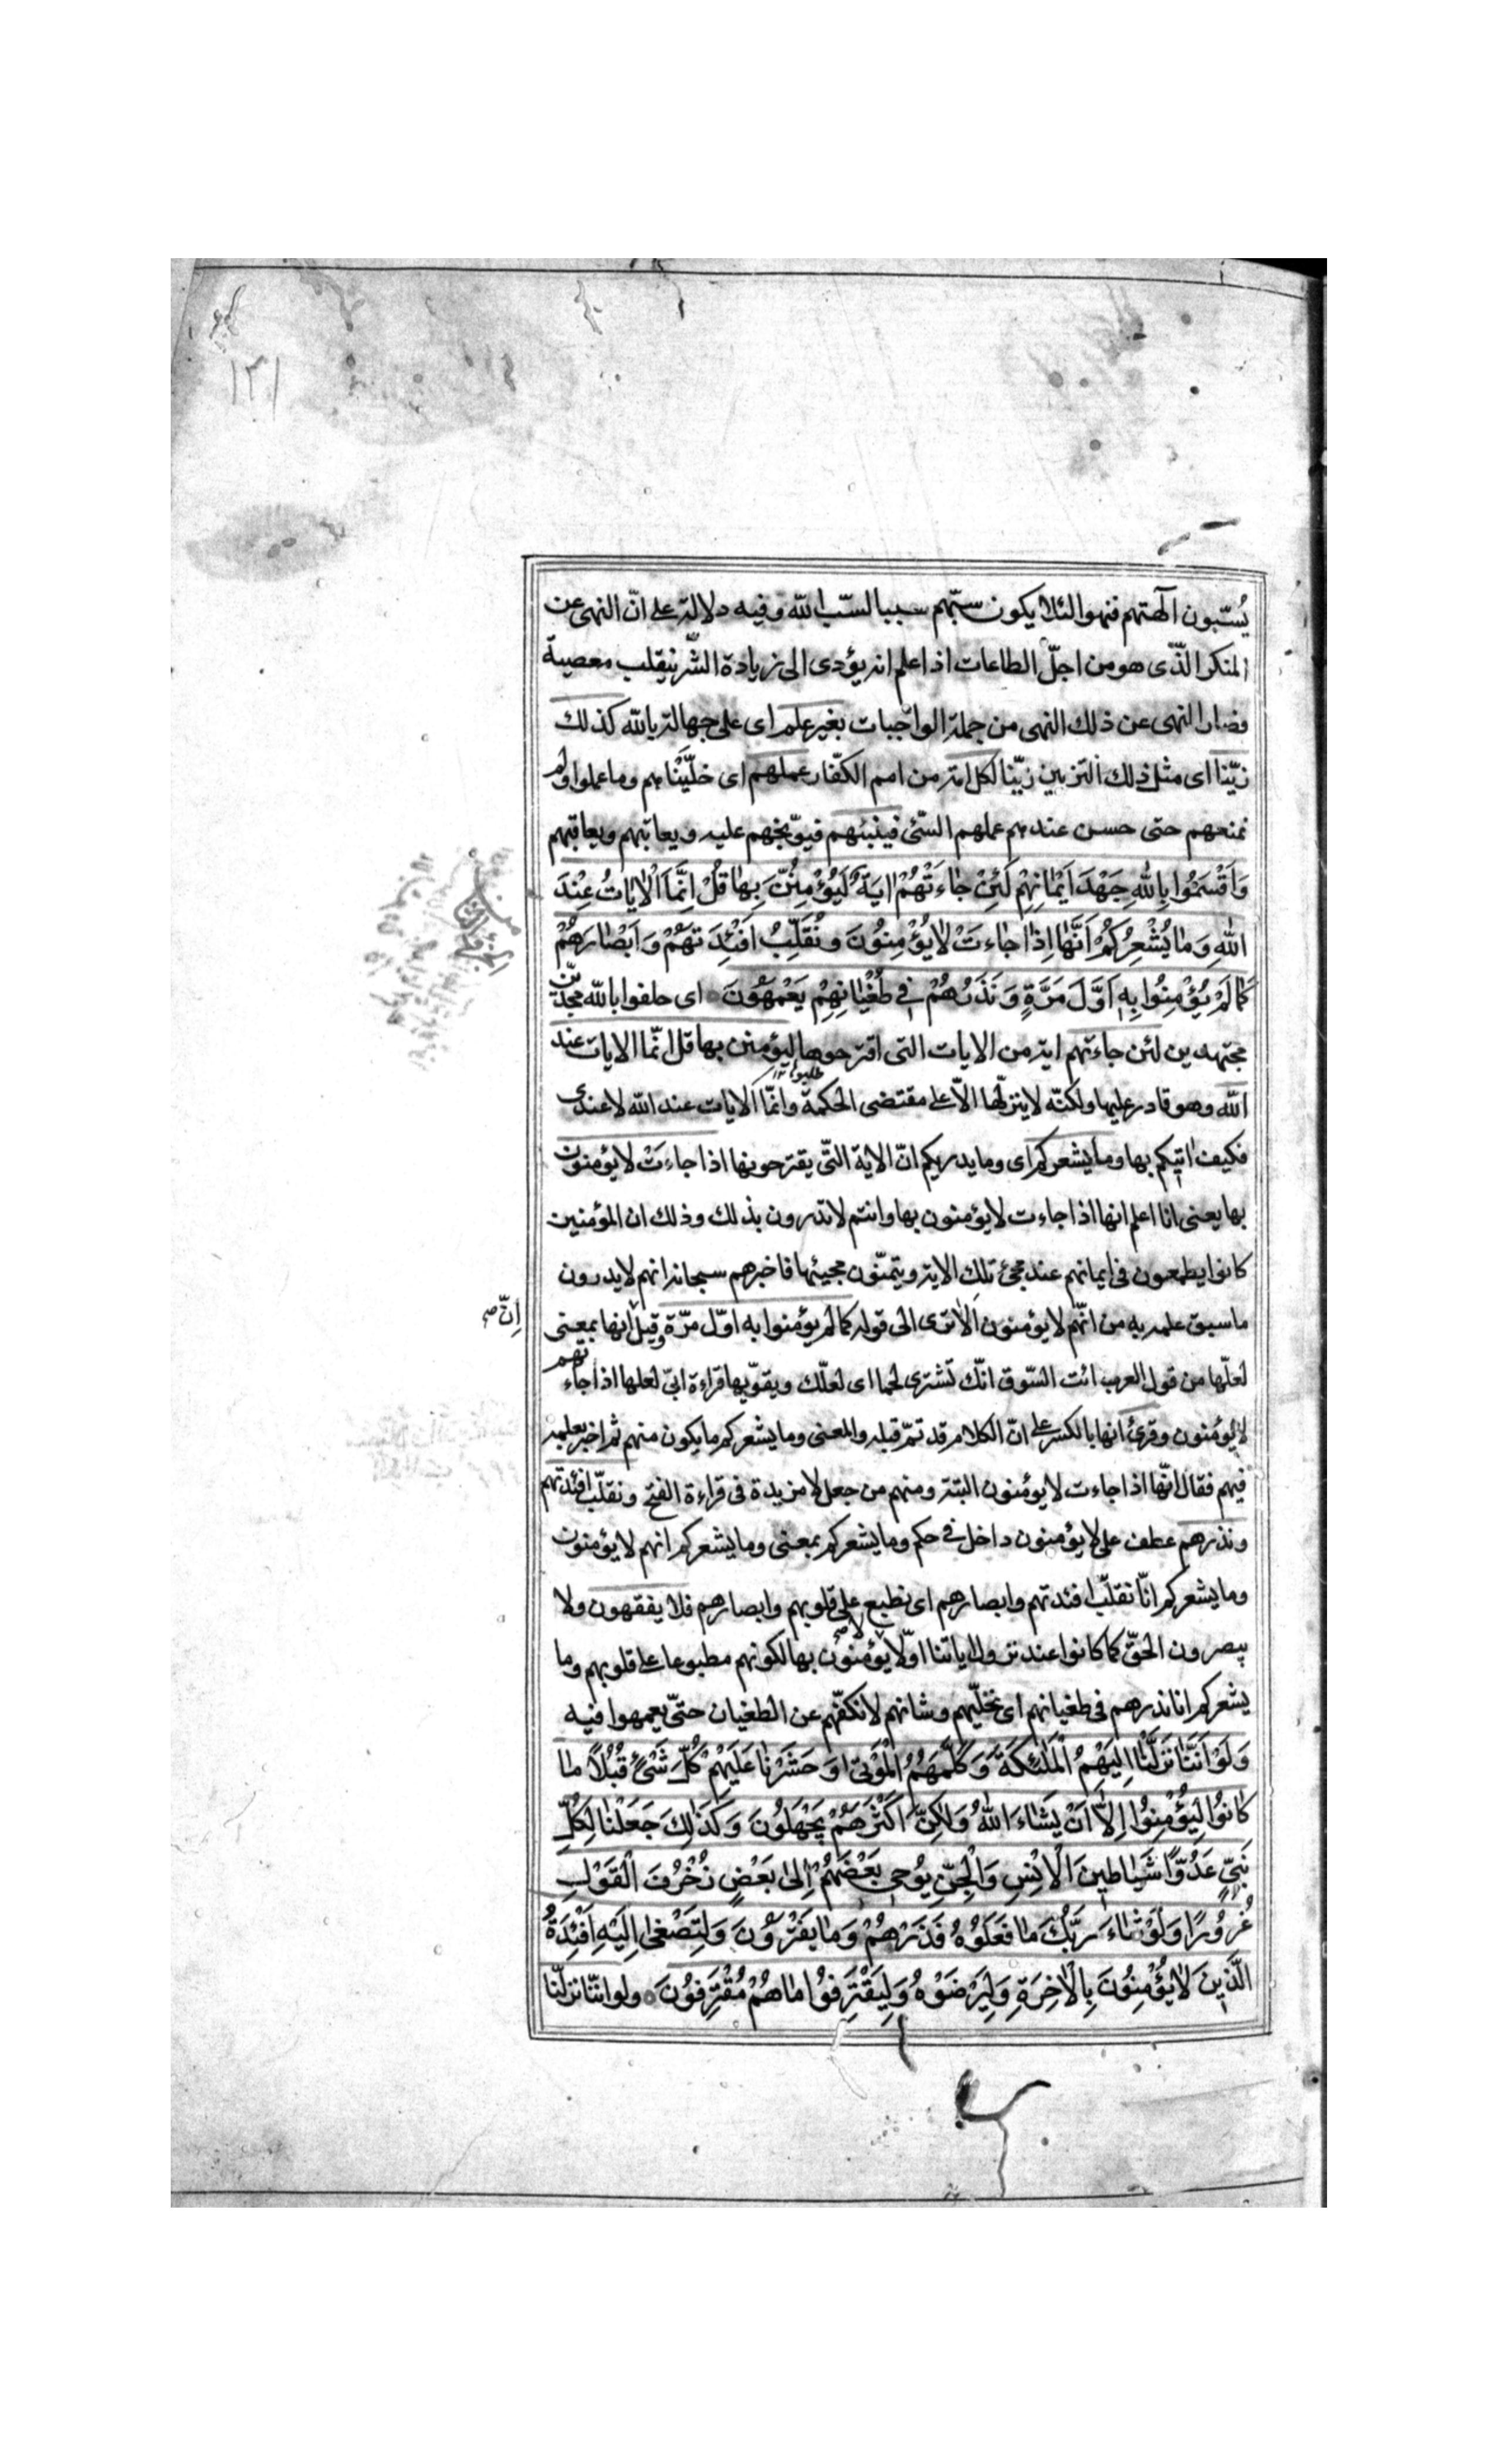 ١٣١
يُسّبون آلهتهم فنهوا لئلا يكون سبّهم سببا لسّب الله وفيه دلالة على انّ النهى عن
المنكر الذّى هو من اجلّ الطاعات اذا علم انه يؤدى الى زيادة الشّر ينقلب معصية
فصار النهى عن ذلك النهى من جملة الواجبات بغير علم اى على جهالة بالله كذلك
زيّنا اى مثل ذلك التزيين زيّنا لكل امة من امم الكفّار عملهم اى خلّيْناهم وما عملوا ولم
نمنعهم حتى حسن عندهم عملهم السّئ فينبئهم فيوّبخهم عليه ويعاتبهم ويعاقبهم
وَاَقْسَمُوا بِاللهِ جَهْدَ اَيْمٰانِهِمْ لَئِنْ جٰاءَتْهُمْ ايَةٌ لَيُؤْمِنُنَّ بِهٰا قُلْ اِنَّمَا الْاٰيٰاتُ عِنْدَ
اللهِ وَمٰا يُشْعِرُكُمْ اَنَّهٰا اِذٰا جٰاءَتْ لٰا يُؤْمِنُونَ وَنُقَلِّبُ اَفْئِدَتَهُمْ وَاَبْصٰارَهُمْ
كَمٰا لَمْ يُؤْمِنُوا بِهِ اَوَّلَ مَرَّةٍ وَنَذَرُهُمْ فِي طُغْيٰانِهِمْ يَعْمَهُونَ اى حلفوا بالله مجدّين
مجتهدين لئن جاءتهم اية من الايات التى اقترحوها ليؤمنن بها قل انّما الايات عند
طلبوا ١٢
الله وهو قادر عليها ولكنّه لا ينزلّها الاّ على مقتضى الحكمة وانمّا الايات عند الله لا عندى
فكيف اتيكم بها وما يشعركم اى وما يدريكم انّ الاية التّى يقترحونها اذا جاءت لا يؤمنون
بها يعنى انا اعلم انها اذا جاءت لا يؤمنون بها وانتم لا تدرون بذلك وذلك ان المؤمنين
كانوا يطمعون فى ايمانهم عند مجئ تلك الاية ويتمنّون مجيئها فاخبرهم سبحانه انهم لا يدرون
ما سبق علمه به من انّهم لا يؤمنون الا ترى الى قوله كما لم يؤمنوا به اوّل مرّة وقيل انها بمعنى
اِنّ صح
لعلّها من قول العرب ائت السّوق انّك تشترى لحما اى لعلّك ويقوّيها قراءة ابىّ لعلها اذا جاءتهم
لا يؤمنون وقرئ انها بالكسر على انّ الكلام قد تمّ قبله والمعنى وما يشعركم ما يكون منهم ثم اخبر بعلمه
فيهم فقال انّها اذا جاءت لا يؤمنون البتة ومنهم من جعل لا مزيدة فى قراءة الفتح ونقلّب افئدتهم
ونذرهم عطف على لا يؤمنون داخل فى حكم وما يشعركم بمعنى وما يشعركم انهم لا يؤمنون
وما يشعركم انّا نقلّب افئدتهم وابصارهم اى نطبع على قلوبهم وابصارهم فلا يفقهون ولا
يبصرون الحقّ كما كانوا عند نزول اياتنا اوّلا لا صح يؤمنون بها لكونهم مطبوعا على قلوبهم وما
يشعركم انا نذرهم فى طغيانهم اى نخلّيهم وشانهم لا نكفّهم عن الطغيان حتّى يعمهوا فيه
وَلَوْ اَنَّنٰا نَزَّلْنٰا اِلَيْهِمُ الْمَلٰئِكَةَ وَكَلَّمَهُمُ الْمَوْتىٰ وَحَشَرْنٰا عَلَيْهِمْ كُلَّ شَىْءٍ قُبُلًا مٰا
كٰانُوا لِيُؤْمِنُوا اِلاَّ اَنْ يَشٰاءَ اللهُ وَلٰكِنَّ اَكْثَرَهُمْ يَجْهَلُونَ وَكَذٰلِكَ جَعَلْنٰا لِكُلِّ
نَبِيٍّ عَدُوًّا شَيٰاطِينَ الْاِنْسِ وَالْجِنِّ يُوحِي بَعْضُهُمْ اِلىٰ بَعْضٍ زُخْرُفَ الْقَوْلِ
غُرُورًا وَلَوْ شٰاءَ رَبُّكَ مٰا فَعَلُوهُ فَذَرْهُمْ وَمٰا يَفْتَرُونَ وَلِتَصْغىٰ اِلَيْهِ اَفْئِدَةُ
الَّذِينَ لٰا يُؤْمِنُونَ بِالْاٰخِرَةِ وَلِيَرْضَوْهُ وَلِيَقْتَرِفُوا مٰا هُمْ مُقْتَرِفُونَ ولو اننّا نزلّنا